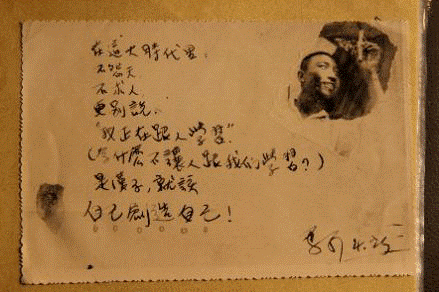 在這大時代裏，
不怨天
不求人，
更別說，
"我正在跟人學習"．
(為什麼不讓人跟我們學習？)
是漢子，就該
自己創造自己！